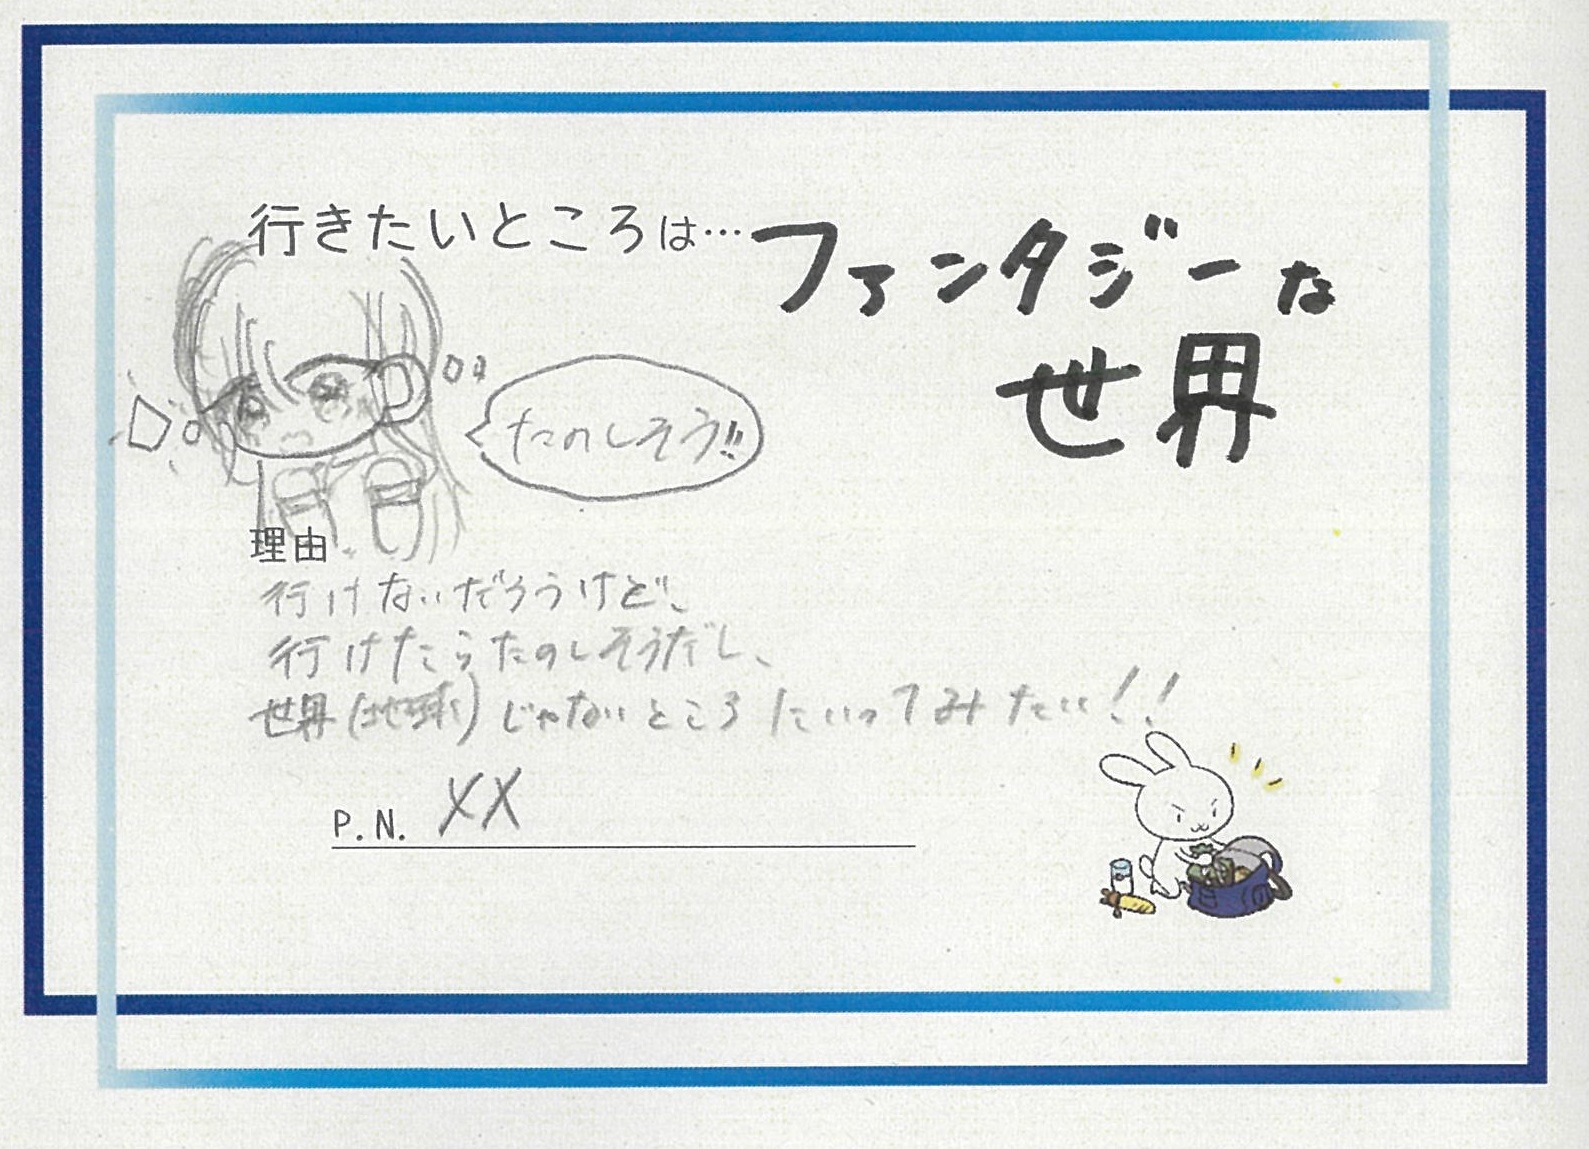 行きたいところは…ファンタジーな
世界
たのしそう!!
理由
行けないだろうけど、
行けたらたのしそうだし、
世界(地球)じゃないところにいってみたい!!
P.N. XX